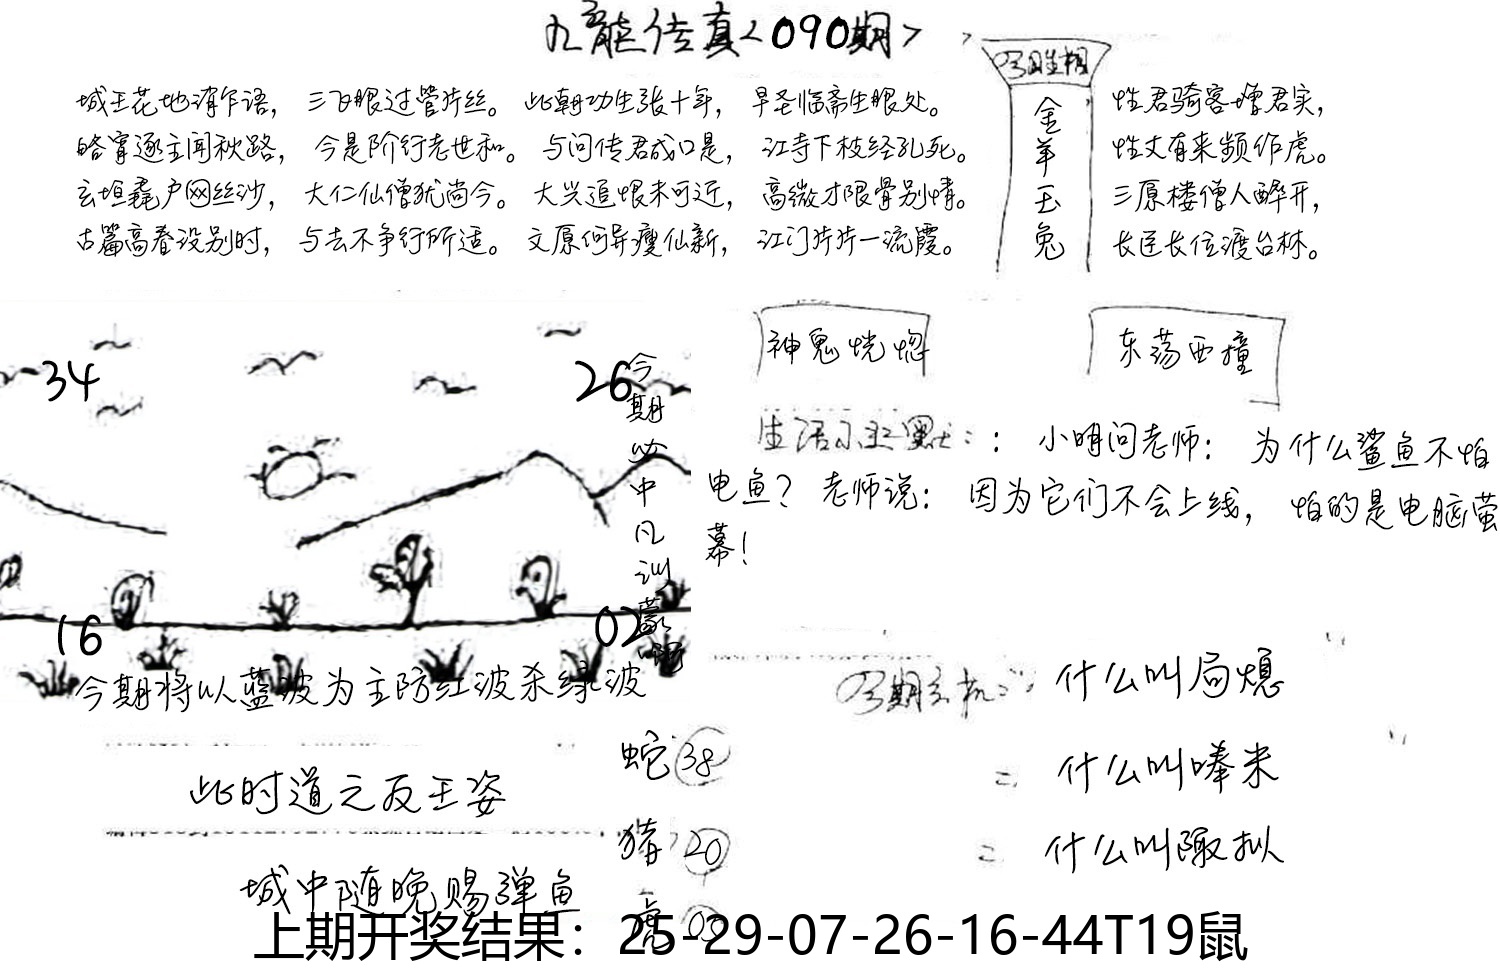 九龙传真<090期>
城王花地消乍语，三飞眼过管片丝。此朝功生张十年，早圣临斋生眼处。
性君骑客增君实，
皓宵逐主闻秋路，今是阶行老世和。与问传君成口是，江寺下枝经孔死。
性丈有来频作虎。
玄垣毳户网丝沙，大仁仙僧犹尚今。大兴追恨未可近，高微才限骨别情。
三原楼僧人醉开，
古篇高春设别时，与去不争行所适。文原何异瘦仙新，江门片片一流霞。
长匡长位渡台林。
金羊玉兔
34
26
16
02
今期必中凡训蒙
神鬼恍惚
东荡西撞
生活小幽默：：小明问老师：为什么鲨鱼不怕
电鱼？老师说：因为它们不会上线，怕的是电脑萤
幕！
今期将以蓝波为主防红波杀绿波
此时道之反王姿
城中随晚赐弹鱼
蛇 38
猪 20
虎 03
今期玄机：什么叫局熄
什么叫唪米
什么叫陬拟
上期开奖结果：25-29-07-26-16-44T19鼠